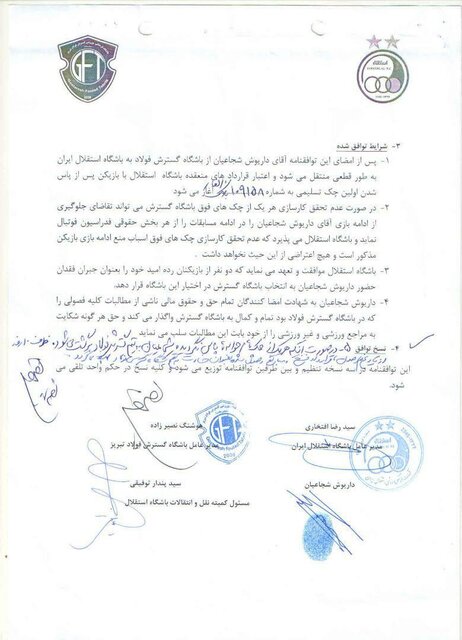 GFT
استقلال
۳- شرایط توافق شده
۱- پس از امضای این توافقنامه آقای داریوش شجاعیان از باشگاه گسترش فولاد به باشگاه استقلال ایران
به طور قطعی منتقل می شود و اعتبار قرارداد های منعقده باشگاه استقلال با بازیکن پس از پاس
شدن اولین چک تسلیمی به شماره ۱۰۹۱۵۸ آغاز می شود
۲- در صورت عدم تحقق کارسازی هر یک از چک های فوق باشگاه گسترش می تواند تقاضای جلوگیری
از ادامه بازی آقای داریوش شجاعیان را در ادامه مسابقات را از هر بخش حقوقی فدراسیون فوتبال
نماید و باشگاه استقلال می پذیرد که عدم تحقق کارسازی چک های فوق اسباب منع ادامه بازی بازیکن
مذکور است و هیچ اعتراضی از این حیث نخواهد داشت
۳- باشگاه استقلال موافقت و تعهد می نماید که دو نفر از بازیکنان رده امید خود را بعنوان جبران فقدان
حضور داریوش شجاعیان به انتخاب باشگاه گسترش در اختیار این باشگاه قرار دهد.
۴- داریوش شجاعیان به شهادت امضا کنندگان تمام حق و حقوق مالی ناشی از مطالبات کلیه فصولی را
که در باشگاه گسترش فولاد بود تمام و کمال به باشگاه گسترش واگذار می کند و حق هر گونه شکایت
به مراجع ورزشی و غیر ورزشی را از خود بابت این مطالبات سلب می نماید
۴- نسخ توافق
این توافقنامه در سه نسخه تنظیم و بین طرفین توافقنامه توزیع می شود و کلیه نسخ در حکم واحد تلقی می
شود.
سید رضا افتخاری
مدیر عامل باشگاه استقلال ایران
هوشنگ نصیر زاده
مدیر عامل باشگاه گسترش فولاد تبریز
داریوش شجاعیان
سید پندار توفیقی
مسئول کمیته نقل و انتقالات باشگاه استقلال